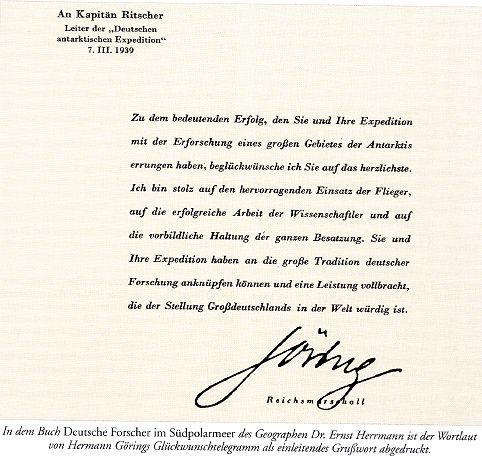 An Kapitän Ritscher
Leiter der „Deutschen
antarktischen Expedition“
7. III. 1939
Zu dem bedeutenden Erfolg, den Sie und Ihre Expedition
mit der Erforschung eines großen Gebietes der Antarktis
errungen haben, beglückwünsche ich Sie auf das herzlichste.
Ich bin stolz auf den hervorragenden Einsatz der Flieger,
auf die erfolgreiche Arbeit der Wissenschaftler und auf
die vorbildliche Haltung der ganzen Besatzung. Sie und
Ihre Expedition haben an die große Tradition deutscher
Forschung anknüpfen können und eine Leistung vollbracht,
die der Stellung Großdeutschlands in der Welt würdig ist.
Göring
Reichsmarschall
In dem Buch Deutsche Forscher im Südpolarmeer des Geographen Dr. Ernst Herrmann ist der Wortlaut
von Hermann Görings Glückwunschtelegramm als einleitendes Grußwort abgedruckt.